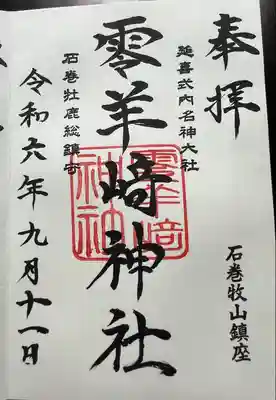 奉拝
石巻牧山鎮座
延喜式内名神大社
零羊崎神社
石巻牡鹿総鎮守
令和六年九月十一日
零羊崎神社